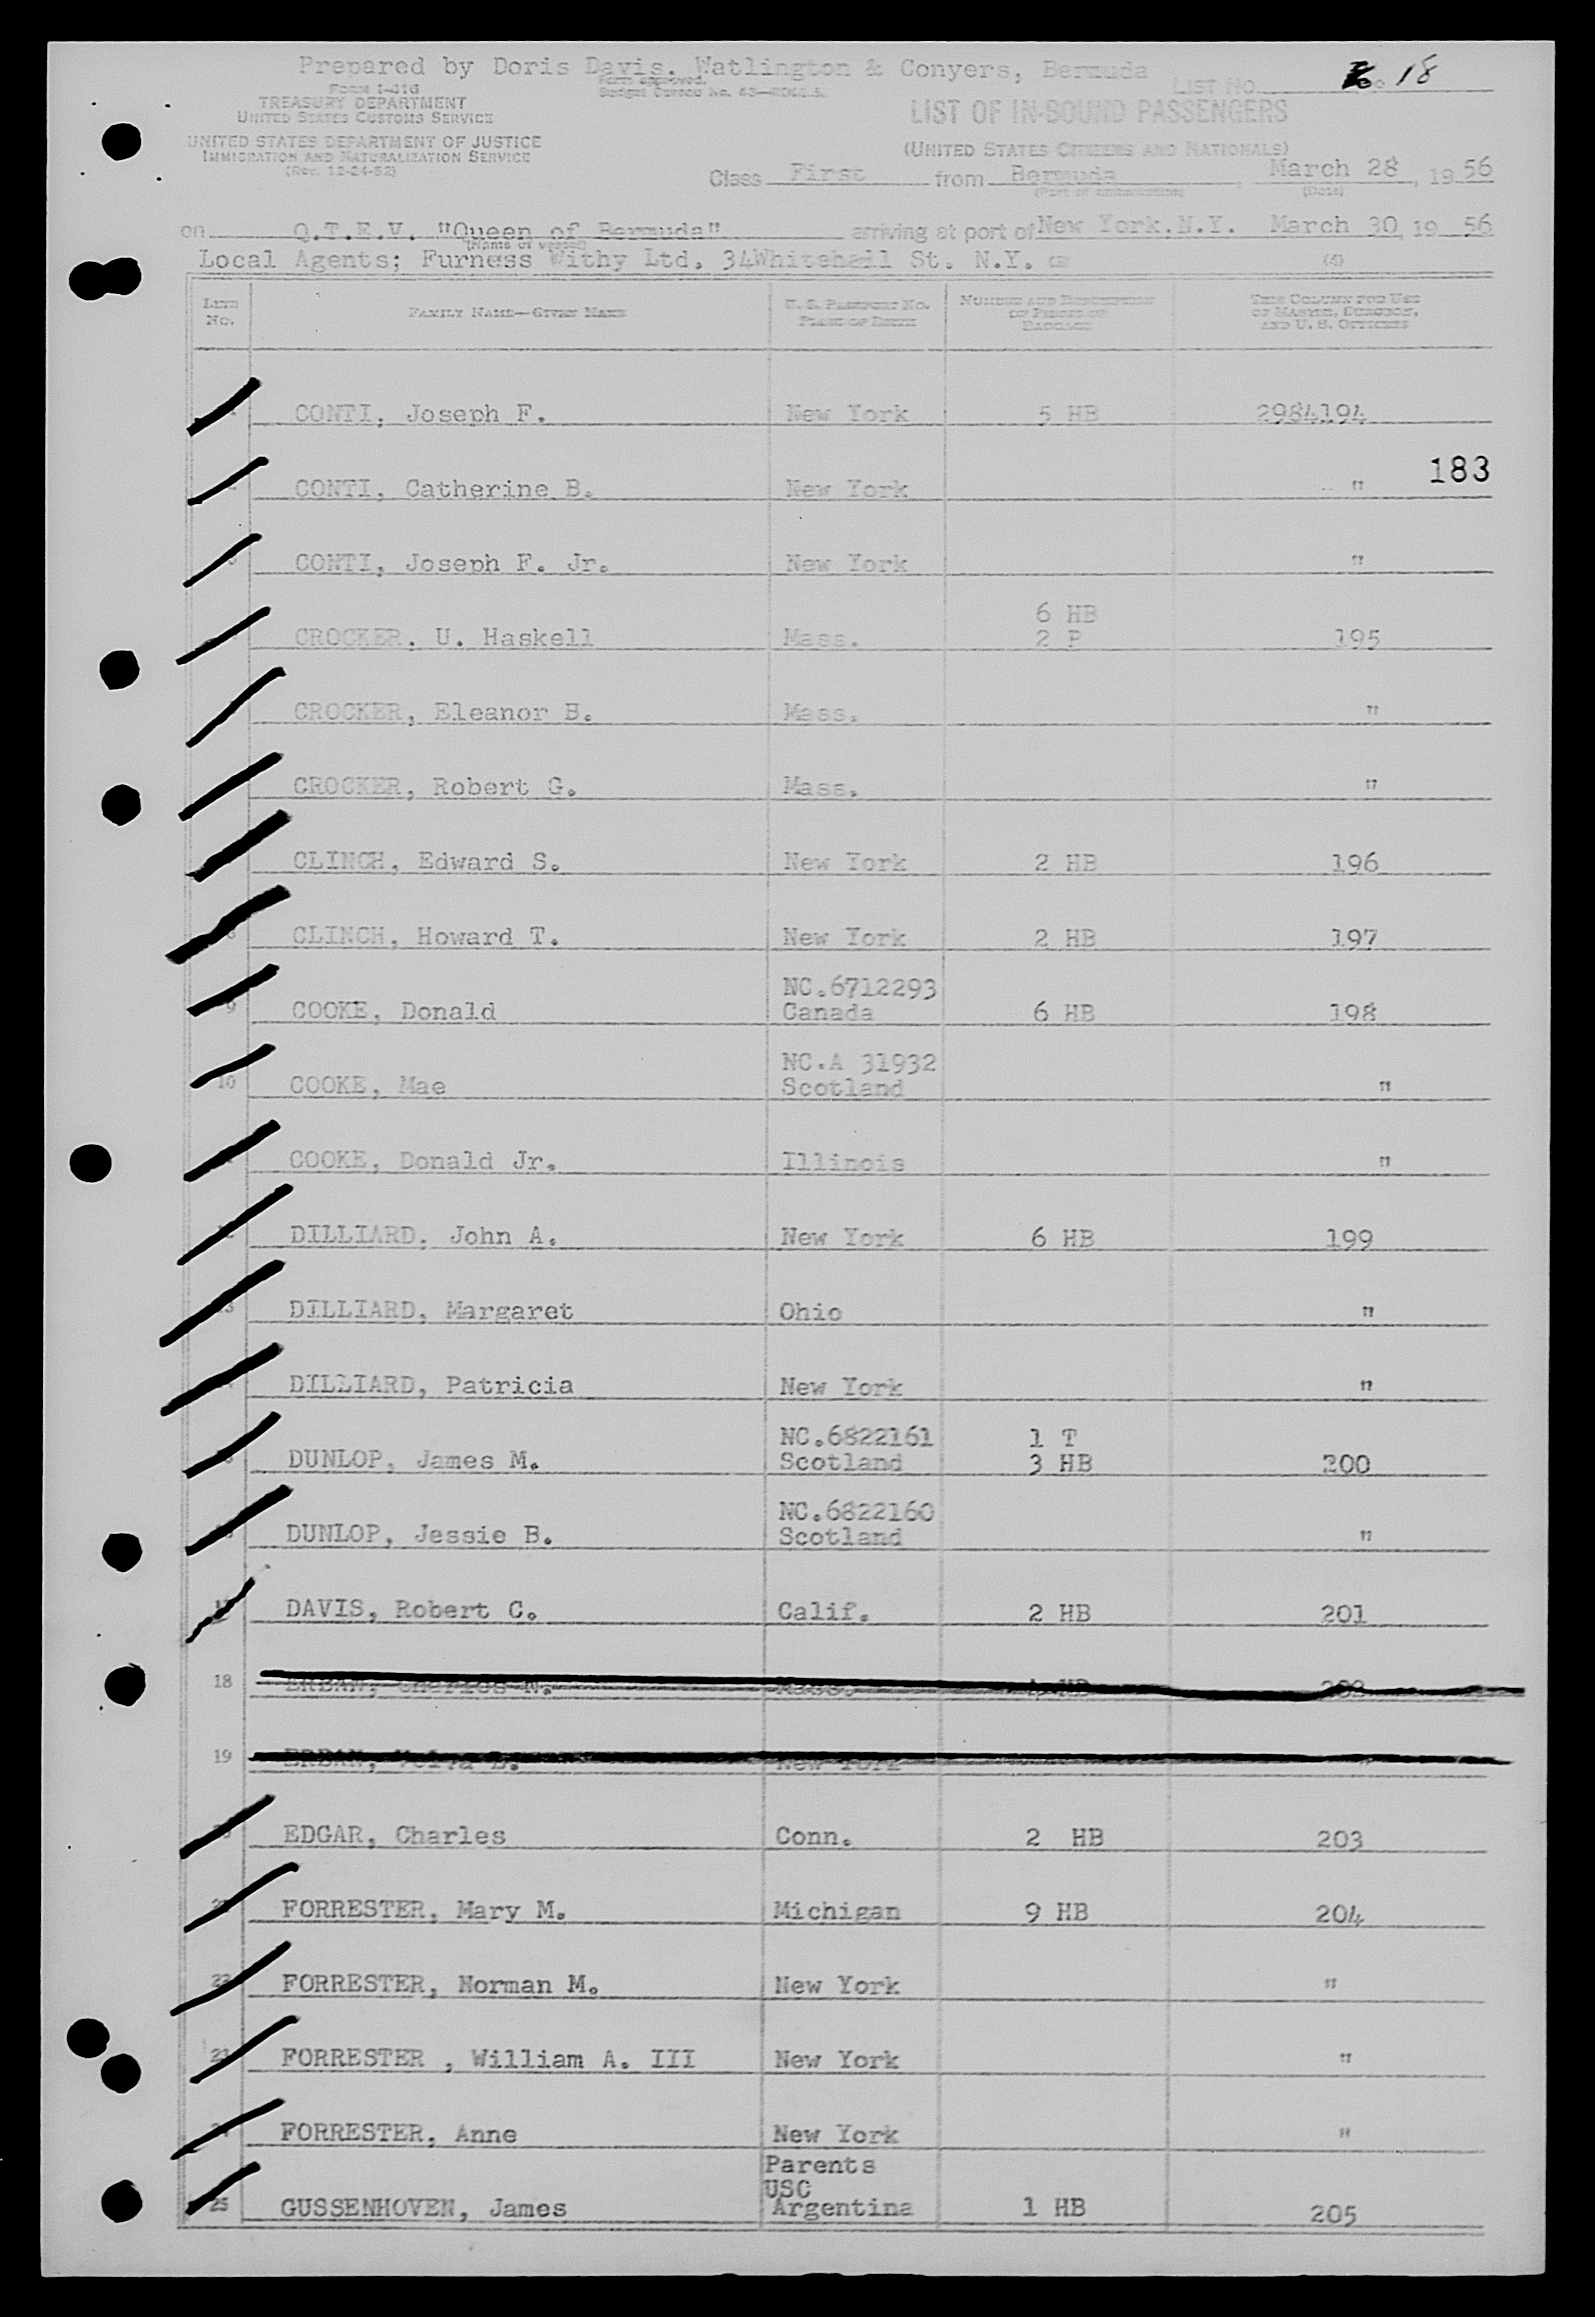 Prepared by Doris Davis, Watlington & Conyers, Bermuda
Form I-416
TREASURY DEPARTMENT
UNITED STATES CUSTOMS SERVICE
UNITED STATES DEPARTMENT OF JUSTICE
IMMIGRATION AND NATURALIZATION SERVICE
(Rev. 12-24-52)
Form approved.
LIST No. 18
LIST OF IN-BOUND PASSENGERS
(UNITED STATES CITIZENS AND NATIONALS)
Class First from Bermuda, March 28, 1956
(Port of embarkation) (Date)
on Q.T.E.V. "Queen of Bermuda" arriving at port of New York.N.Y. March 30, 19 56
(Name of vessel)
Local Agents; Furness Withy Ltd. 34Whitehall St. N.Y. (3) (4)
LINE No. FAMILY NAME—GIVEN NAME U. S. PASSPORT NO. PLACE OF BIRTH NUMBER AND DESCRIPTION OF PIECES OF BAGGAGE THIS COLUMN FOR USE OF MASTER, SURGEON, AND U. S. OFFICERS
CONTI, Joseph F. New York 5 HB 2984194
183
CONTI, Catherine B. New York "
CONTI, Joseph F. Jr. New York "
6 HB
CROCKER, U. Haskell Mass. 2 P 195
CROCKER, Eleanor B. Mass. "
CROCKER, Robert G. Mass. "
CLINCH, Edward S. New York 2 HB 196
8 CLINCH, Howard T. New York 2 HB 197
NC.6712293
9 COOKE, Donald Canada 6 HB 198
NC.A 31932
10 COOKE, Mae Scotland "
COOKE, Donald Jr. Illinois "
DILLIARD. John A. New York 6 HB 199
13 DILLIARD, Margaret Ohio "
DILLIARD, Patricia New York "
NC.6822161 1 T
DUNLOP, James M. Scotland 3 HB 200
NC.6822160
DUNLOP, Jessie B. Scotland "
17 DAVIS, Robert C. Calif. 2 HB 201
18 ERBAN, Charles N. Mass. 1 HB 202
19 ERBAN, New York "
EDGAR, Charles Conn. 2 HB 203
FORRESTER, Mary M. Michigan 9 HB 204
22 FORRESTER, Norman M. New York "
23 FORRESTER , William A. III New York "
24 FORRESTER, Anne New York "
Parents
USC
25 GUSSENHOVEN, James Argentina 1 HB 205